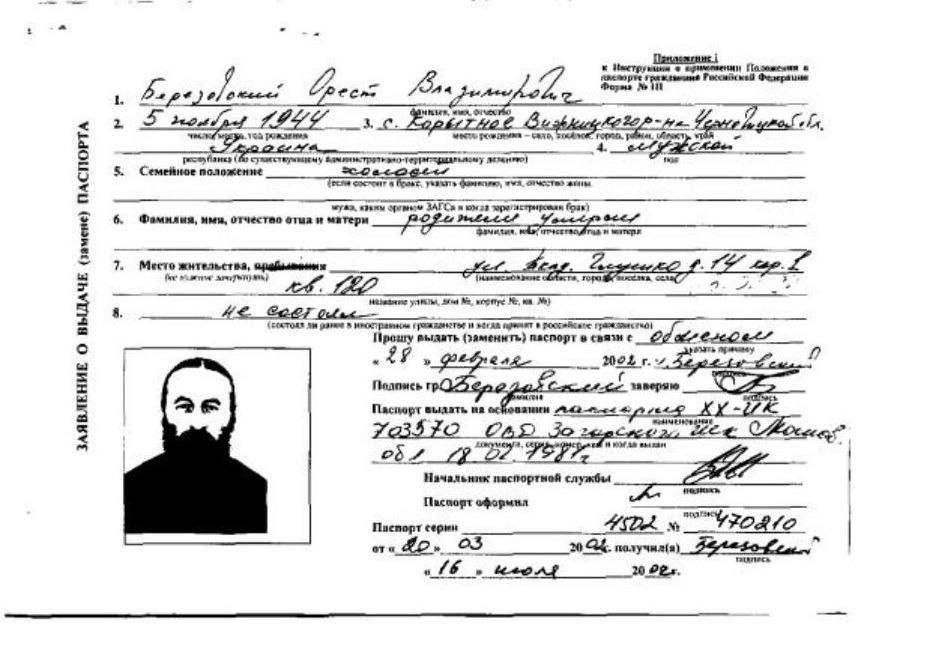 Приложение 1
к Инструкции о применении Положения о
паспорте гражданина Российской Федерации
Форма № 1П
ЗАЯВЛЕНИЕ О ВЫДАЧЕ (замене) ПАСПОРТА
1. Березовский Орест Владимирович
фамилия, имя, отчество
2. 5 ноября 1944 3. с. Корытное Вижницкого р-на Черновицкой обл.
число, месяц, год рождения место рождения – село, поселок, город, район, область, край
Украина 4. мужской
республика (по существующему административно-территориальному делению) пол
5. Семейное положение холост
(если состоит в браке, указать фамилию, имя, отчество жены,
мужа, каким органом ЗАГСа и когда зарегистрирован брак)
6. Фамилия, имя, отчество отца и матери родители умерли
фамилия, имя, отчество отца и матери
7. Место жительства, пребывания ул. д. 14 кор. 1
(не нужное зачеркнуть) (наименование области, города, поселка, села,
кв. 120
название улицы, дом №, корпус №, кв. №)
8. не состоял
(состоял ли ранее в иностранном гражданстве и когда принят в российское гражданство)
Прошу выдать (заменить) паспорт в связи с обменом
указать причину
« 28 » февраля 2002 г. Березовский
Подпись гр. Березовский заверяю
фамилия подпись
Паспорт выдать на основании паспорта XX-ИК
наименование
703570 ОВД Загорского
документа, серия, номер, кем и когда выдан
обл 18 02 1981г
Начальник паспортной службы
подпись
Паспорт оформил
подпись
Паспорт серии 4502 № 470210
от « 20 » 03 2002г. получил(а) Березовский
подпись
« 16 » июля 2002г.